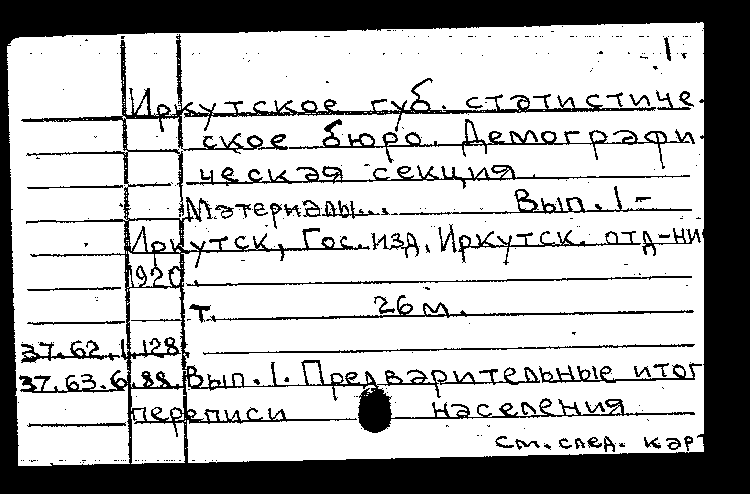 1.
Иркутское губ. статистиче-
ское бюро. Демографи-
ческая секция.
Материалы... Вып. 1-
Иркутск, Гос. изд. Иркутск. отд-ни
1920.
т. 26 м.
37.62.1.128.
37.63.6.88. Вып. 1. Предварительные итог
переписи населения
см. след. карт